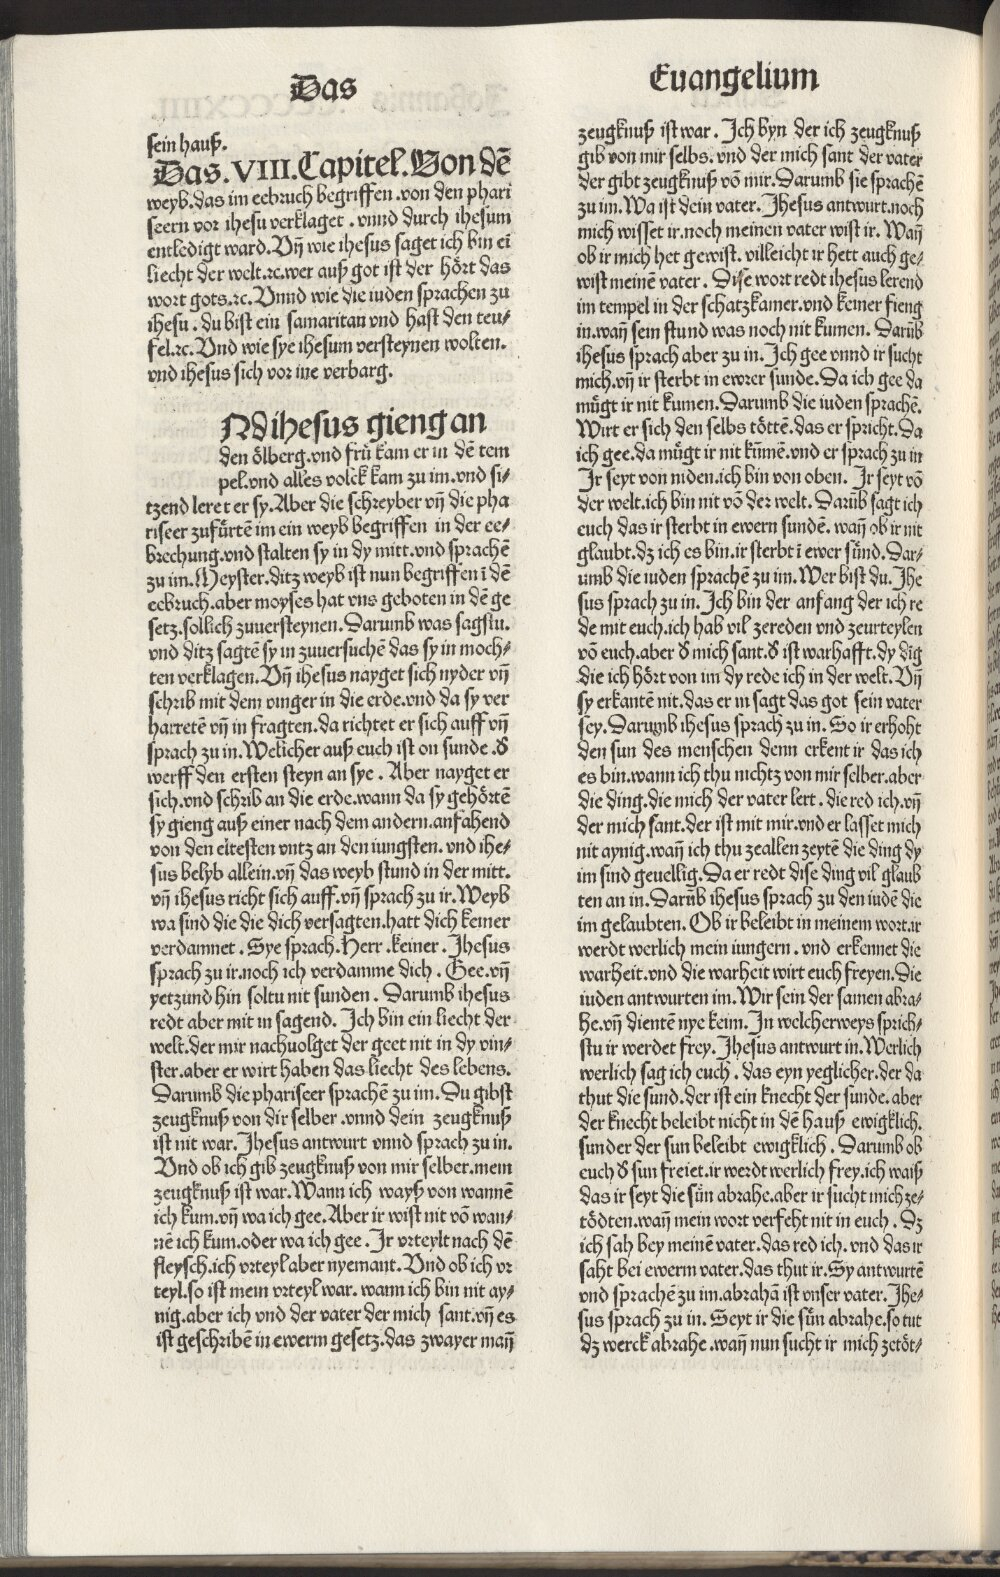 Das
Euangelium
sein hauß.
Das. VIII. Capitel. Von dē
weyb.das im eebruch begriffen.von den phari
seern vor ihesu verklaget. vnnd durch ihesum
entledigt ward. Vn̄ wie ihesus saget ich bin ei
liecht der welt.⁊c.wer auß got ist der hört das
wort gots.⁊c. Vnnd wie die iuden sprachen zu
ihesu. du bist ein samaritan vnd hast den teu⸗
fel.⁊c. Vnd wie sye ihesum versteynen wolten.
vnd ihesus sich vor ine verbarg.
Nd ihesus gieng an
den ölberg.vnd frü kam er in dē tem
pel.vnd alles volck kam zu im.vnd si⸗
tzend leret er sy. Aber die schreyber vn̄ die pha
riseer zufürtē im ein weyb begriffen in der ee⸗
brechung.vnd stalten sy in dy mitt.vnd sprachē
zu im. Meyster.ditz weyb ist nun begriffen ī dē
eebruch.aber moyses hat vns geboten in dē ge
setz.sollich zuuersteynen. Darumb was sagstu.
vnd ditz sagtē sy in zuuersuchē das sy in moch⸗
ten verklagen. Vn̄ ihesus nayget sich nyder vn̄
schrib mit dem vinger in die erde.vnd da sy ver
harretē vn̄ in fragten.da richtet er sich auff vn̄
sprach zu in. Welicher auß euch ist on sunde .d̛
werff den ersten steyn an sye . Aber nayget er
sich.vnd schrib an die erde.wann da sy gehörtē
sy gieng auß einer nach dem andern.anfahend
von den eltesten vntz an den iungsten. vnd ihe⸗
sus belyb allein.vn̄ das weyb stund in der mitt.
vn̄ ihesus richt sich auff.vn̄ sprach zu ir. Weyb
wa sind die die dich versagten.hatt dich keiner
verdamnet . Sye sprach. Herr .keiner. Ihesus
sprach zu ir.noch ich verdamme dich . Gee.vn̄
yetzund hin soltu nit sunden . Darumb ihesus
redt aber mit in sagend. Ich bin ein liecht der
welt.der mir nachuolget der geet nit in dy vin⸗
ster.aber er wirt haben das liecht des lebens.
Darumb die phariseer sprachē zu im. Du gibst
zeugknuß von dir selber .vnnd dein zeugknuß
ist nit war. Ihesus antwurt vnnd sprach zu in.
Vnd ob ich gib zeugknuß von mir selber.mein
zeugknuß ist war. Wann ich wayß von wannē
ich kum.vn̄ wa ich gee. Aber ir wist nit vō wan⸗
nē ich kum.oder wa ich gee . Ir vrteylt nach dē
fleysch.ich vrteyl aber nyemant. Vnd ob ich vr
teyl.so ist mein vrteyl war. wann ich bin nit ay⸗
nig.aber ich vnd der vater der mich sant.vn̄ es
ist geschribē in ewerm gesetz.das zwayer man̄
zeugknuß ist war . Ich byn der ich zeugknuß
gib von mir selbs. vnd der mich sant der vater
der gibt zeugknuß vō mir. Darumb sie sprachē
zu im. Wa ist dein vater. Ihesus antwurt.noch
mich wisset ir.noch meinen vater wist ir. Wan̄
ob ir mich het gewist. villeicht ir hett auch ge⸗
wist meinē vater . Dise wort redt ihesus lerend
im tempel in der schatzkamer.vnd keiner fieng
in.wan̄ sein stund was noch nit kumen. Darūb
ihesus sprach aber zu in. Ich gee vnnd ir sucht
mich.vn̄ ir sterbt in ewrer sunde. Da ich gee da
mügt ir nit kumen. Darumb die iuden sprachē.
Wirt er sich den selbs töttē.das er spricht. Da
ich gee.da mügt ir nit kūmē.vnd er sprach zu in
Ir seyt von niden.ich bin von oben. Ir seyt vō
der welt.ich bin nit vō der welt. Darūb sagt ich
euch das ir sterbt in ewern sundē. wan̄ ob ir nit
glaubt.dz ich es bin.ir sterbt ī ewer sünd. Dar⸗
umb die iuden sprachē zu im. Wer bist du. Ihe
sus sprach zu in. Ich bin der anfang der ich re
de mit euch.ich hab vil zereden vnd zeurteylen
vō euch.aber d̛ mich sant.d̛ ist warhafft.dy dig
die ich hört von im dy rede ich in der welt. Vn̄
sy erkantē nit.das er in sagt das got sein vater
sey. Darumb ihesus sprach zu in. So ir erhoht
den sun des menschen denn erkent ir das ich
es bin.wann ich thu nichtz von mir selber.aber
die ding.die mich der vater lert . die red ich.vn̄
der mich sant.der ist mit mir.vnd er lasset mich
nit aynig.wan̄ ich thu zeallen zeytē die ding dy
im sind geuellig. Da er redt dise ding vil glaub
ten an in. Darūb ihesus sprach zu den iudē die
im gelaubten. Ob ir beleibt in meinem wort.ir
werdt werlich mein iungern . vnd erkennet die
warheit.vnd die warheit wirt euch freyen. Die
iuden antwurten im. Wir sein der samen abra⸗
he.vn̄ dientē nye keim. In welcherweys sprich⸗
stu ir werdet frey. Ihesus antwurt in. Werlich
werlich sag ich euch . das eyn yeglicher.der da
thut die sund.der ist ein knecht der sunde. aber
der knecht beleibt nicht in dē hauß ewigklich.
sunder der sun beleibt ewigklich . Darumb ob
euch d̛ sun freiet.ir werdt werlich frey.ich waiß
das ir seyt die sün abrahe.aber ir sucht mich ze⸗
tödten.wan̄ mein wort verfeht nit in euch . Dz
ich sah bey meinē vater.das red ich. vnd das ir
saht bei ewerm vater.das thut ir. Sy antwurtē
vnd sprachē zu im.abrahā ist vnser vater. Ihe⸗
sus sprach zu in. Seyt ir die sün abrahe.so tut
dz werck abrahe .wan̄ nun sucht ir mich zetöt⸗